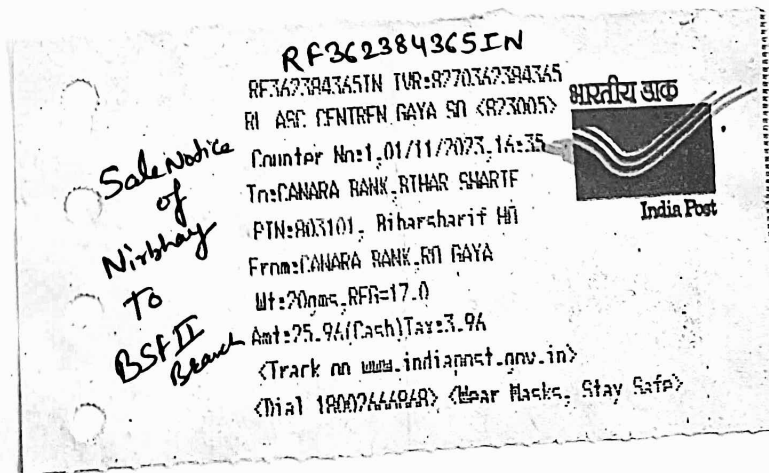 RF362384365IN
RF362384365IN IVR:8270362384365
RL ASC CENTREN GAYA SO <823005>
Counter No:1,01/11/2023,14:35
To:CANARA BANK,BIHAR SHARIF
PIN:803101, Biharsharif HO
From:CANARA BANK,RO GAYA
Wt:20gms,REG=17.0
Amt:25.96(Cash)Tax:3.96
<Track on www.indiapost.gov.in>
<Dial 18002666868> <Wear Masks, Stay Safe>
Sale Notice
of
Nirbhay
To
BSF II
Branch
भारतीय डाक
India Post